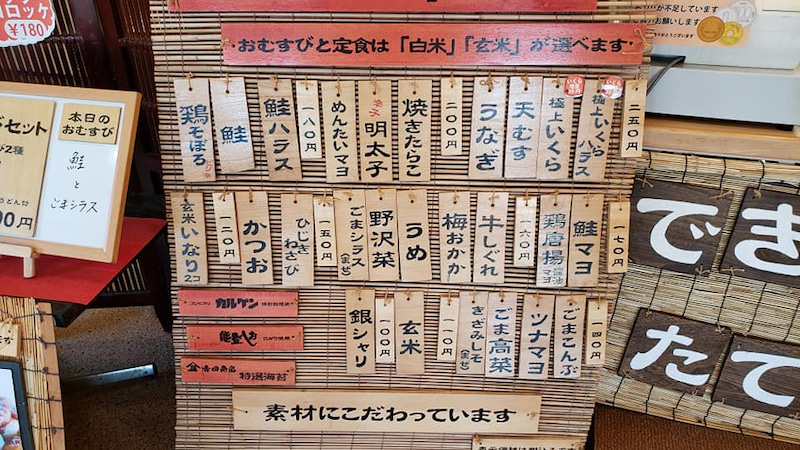 コロッケ
¥180
おむすびと定食は「白米」「玄米」が選べます
が不足しています
お願いします
セット
び2種
うどん付
00円
本日の
おむすび
鮭
と
ごまシラス
二五〇円
極上いくら
ハラス
極上いくら
天むす
うなぎ
二〇〇円
焼きたらこ
明太子
めんたいマヨ
一八〇円
鮭ハラス
鮭
鶏そぼろ
一七〇円
鮭マヨ
鶏唐揚
醤油
マヨ
一六〇円
牛しぐれ
梅おかか
うめ
野沢菜
ごまシラス
(まぜ)
一五〇円
ひじき
わさび
かつお
一二〇円
玄米いなり
2コ
一四〇円
ごまこんぶ
ツナマヨ
ごま高菜
きざみしそ
(まぜ)
一一〇円
玄米
一〇〇円
銀シャリ
カルゲン
特選海苔
素材にこだわっています
でき
たて